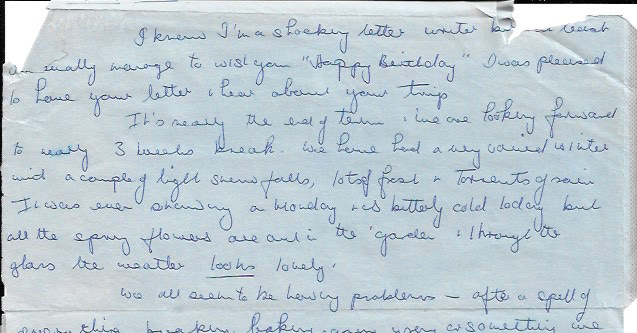 I know I'm a shocking letter writer but at least
usually manage to wish you "Happy Birthday" I was pleased
to have your letter & hear about your trip
It's nearly the end of term & we are looking forward
to nearly 3 weeks break. We have had a very varied winter
with a couple of light snow falls, lots of frost & Torrents of rain
It was even snowing on Monday & is bitterly cold today but
all the spring flowers are out in the garden & through the
glass the weather looks lovely.
We all seem to be having problems — after a spell of
everything breaking